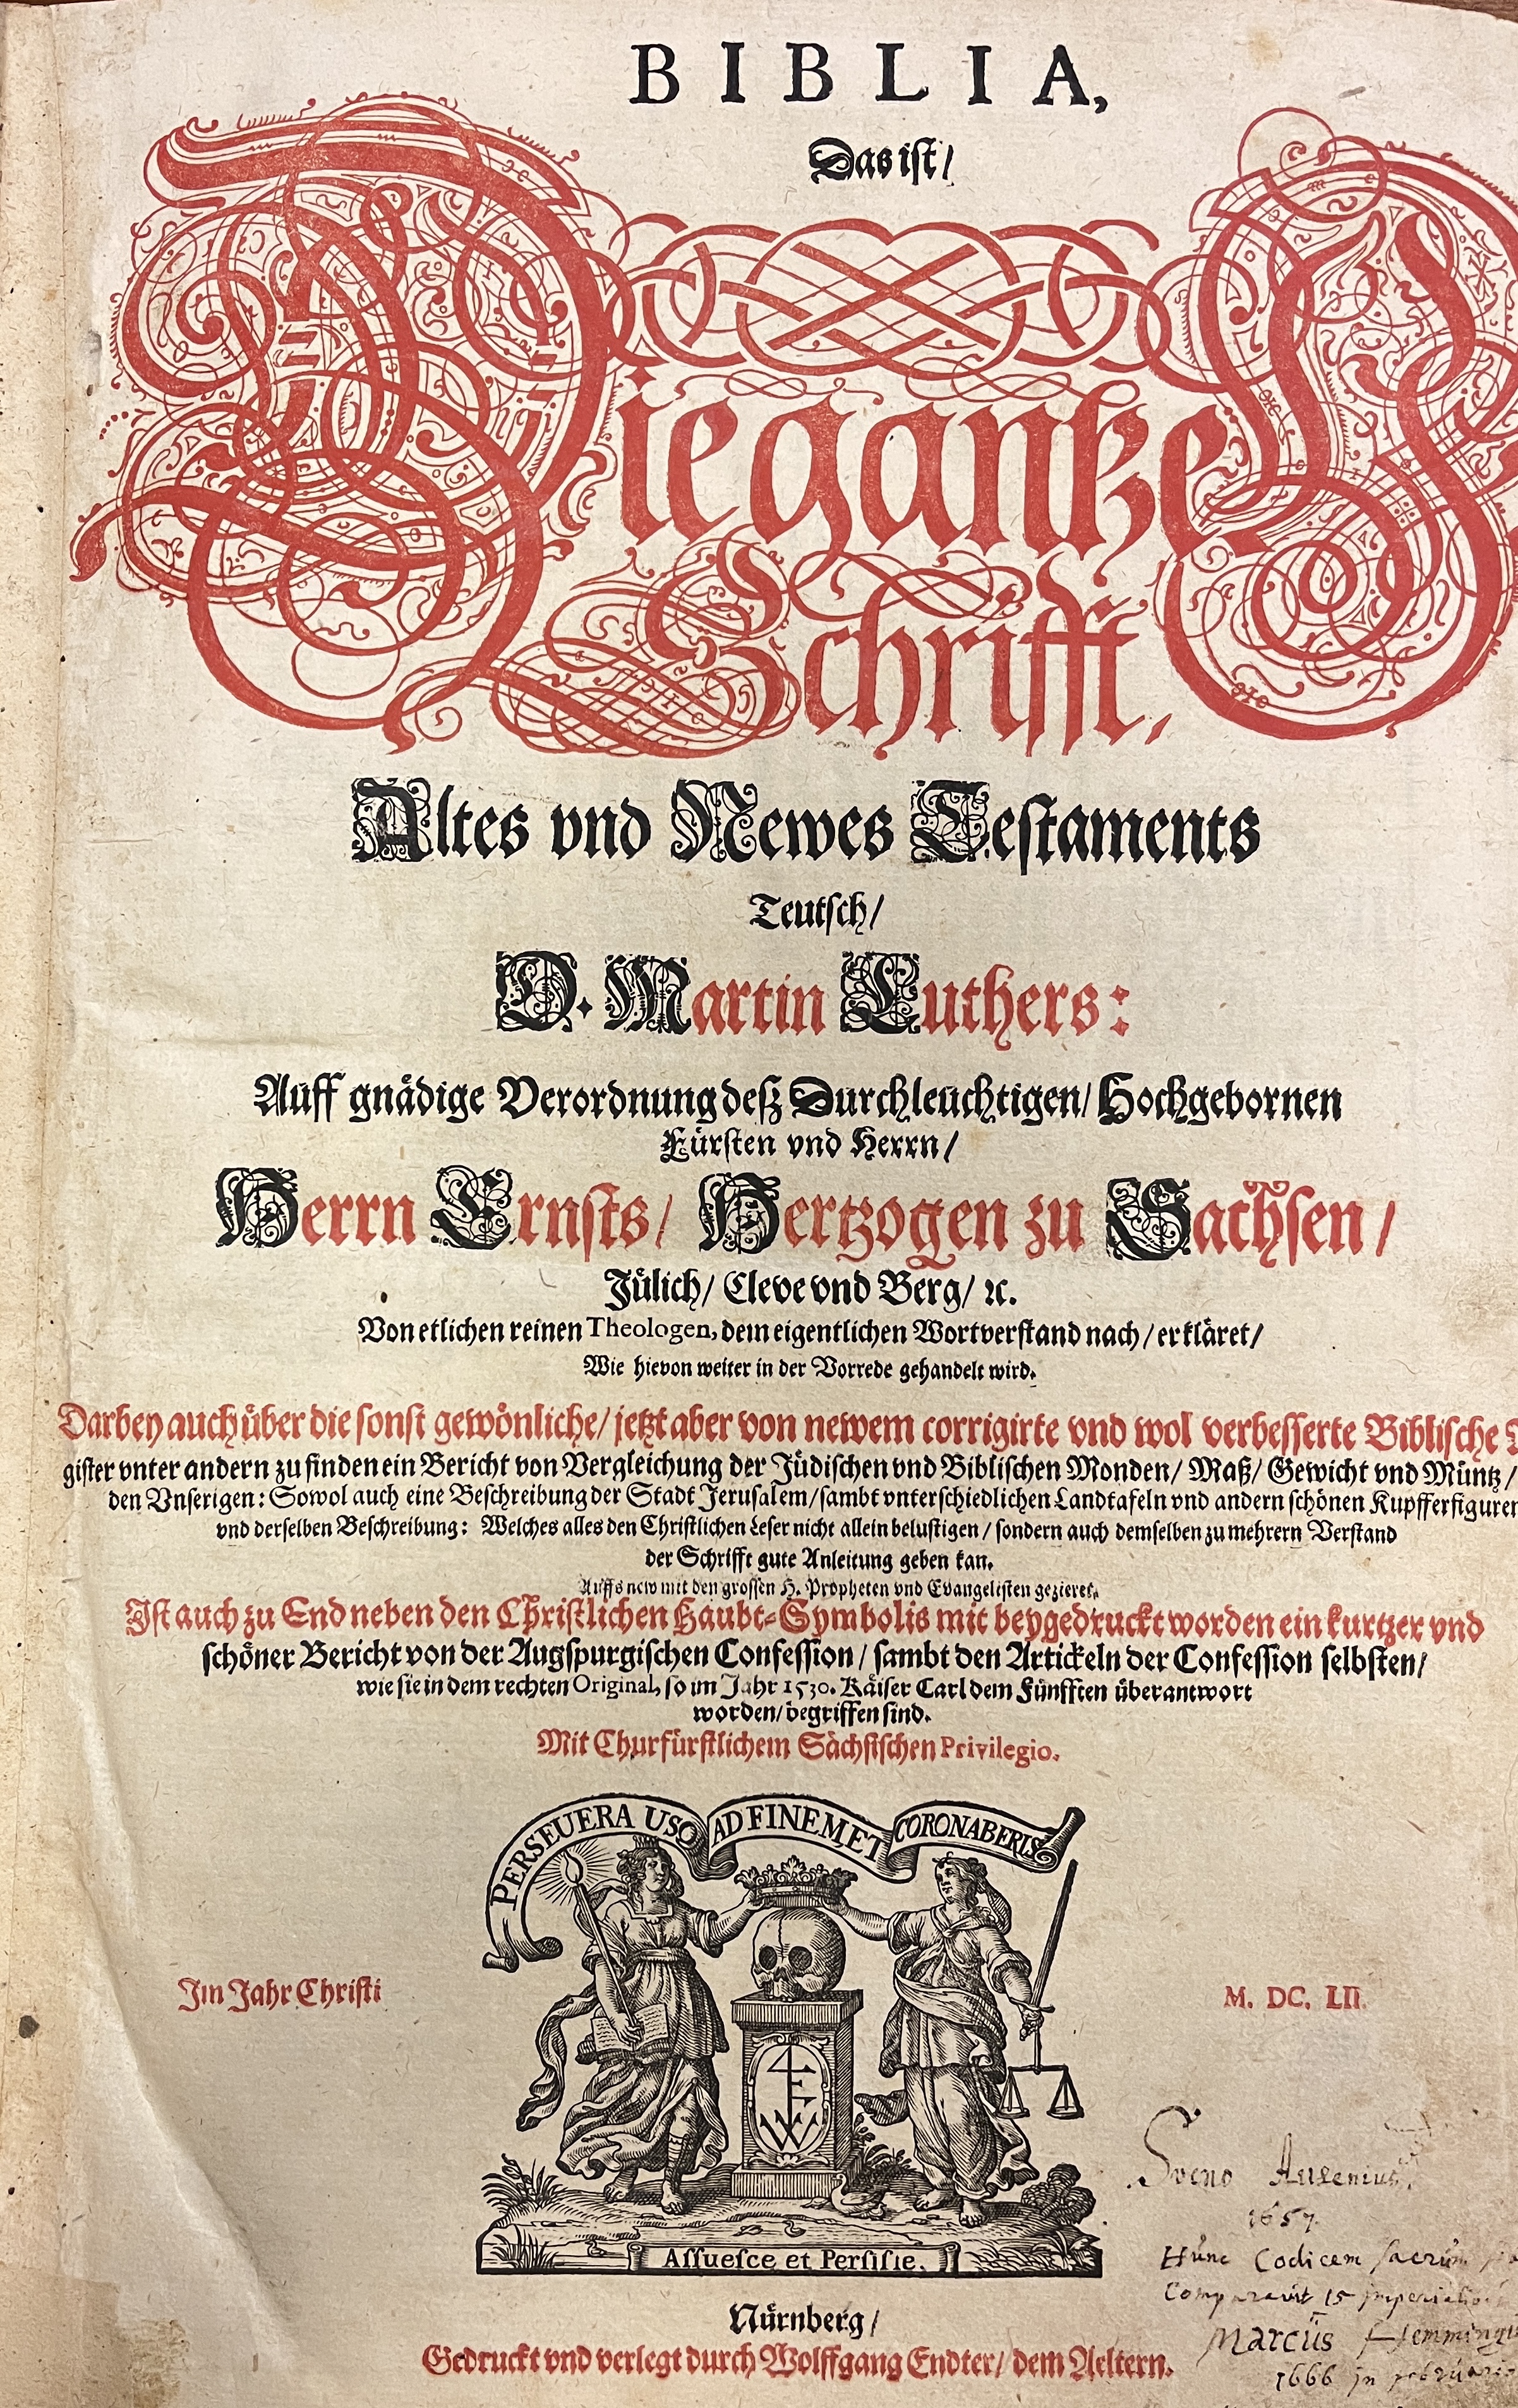 BIBLIA,
Das ist/
Die gantze
Schrifft,
Altes vnd Newes Testaments
Teutsch/
D. Martin Luthers:
Auff gnädige Verordnung deß Durchleuchtigen/ Hochgebornen
Fürsten vnd Herrn/
Herrn Ernsts/ Hertzogen zu Sachsen/
Jülich/ Cleve vnd Berg/ ꝛc.
Von etlichen reinen Theologen, dem eigentlichen Wortverstand nach/ erkläret/
Wie hievon weiter in der Vorrede gehandelt wird.
Darbey auch über die sonst gewönliche/ jetzt aber von newem corrigirte vnd wol verbesserte Biblische
gister vnter andern zu finden ein Bericht von Vergleichung der Jüdischen vnd Biblischen Monden/ Maß/ Gewicht vnd Müntz/
den Vnserigen: Sowol auch eine Beschreibung der Stadt Jerusalem/ sambt vnterschiedlichen Landtafeln vnd andern schönen Kupfferfiguren
vnd derselben Beschreibung: Welches alles den Christlichen Leser nicht allein belustigen/ sondern auch demselben zu mehrern Verstand
der Schrifft gute Anleitung geben kan.
Auffs new mit den grossen H. Propheten vnd Evangelisten gezieret.
Ist auch zu End neben den Christlichen Haubt-Symbolis mit beygedruckt worden ein kurtzer vnd
schöner Bericht von der Augspurgischen Confession/ sambt den Artickeln der Confession selbsten/
wie sie in dem rechten Original, so im Jahr 1530. Käiser Carl dem Fünfften überantwort
worden/ begriffen sind.
Mit Churfürstlichem Sächsischen Privilegio.
PERSEUERA USQ AD FINEM ET CORONABERIS
Im Jahr Christi
M. DC. LII.
4 E W
Assuesce et Persiste.
Sveno Ausenius.
1657.
Hunc Codicem sacrum
Comparavit 15 imperialib
Marcus Hemming
1666 in februario
Nürnberg/
Gedruckt vnd verlegt durch Wolffgang Endter/ dem Aeltern.